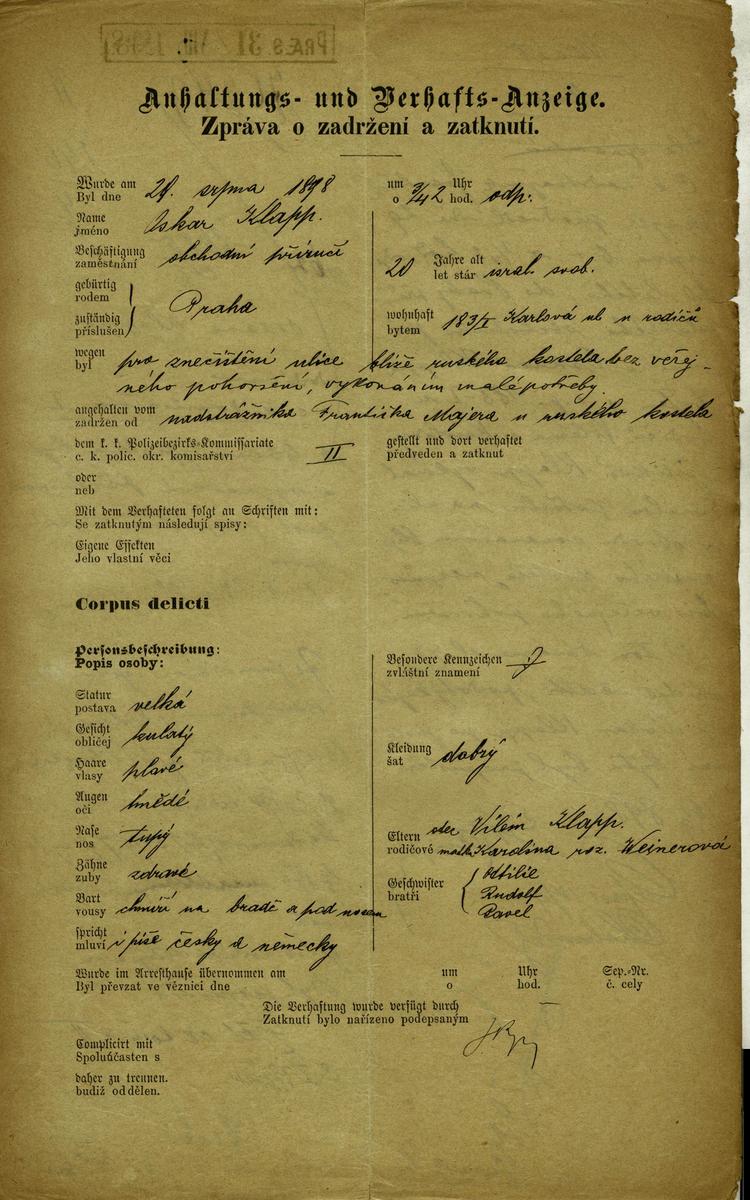 PRÆS. 31
Anhaltungs- und Verhafts-Anzeige.
Zpráva o zadržení a zatknutí.
Wurde am
Byl dne 29. srpna 1898
um Uhr
o 3/4 2 hod. odp.
Name
jméno Oskar Klapp.
Beschäftigung
zaměstnání obchodní příručí
20 Jahre alt
let stár isral. svob.
gebürtig
rodem
zuständig
příslušen Praha
wohnhaft
bytem 183/I Karlova ul u rodičů
wegen
byl pro znečištění ulice blíže ruského kostela bez veřej-
ného pohoršení, vykonáním malé potřeby
angehalten vom
zadržen od nadstrážníka Františka Majera u ruského kostela
dem k. k. Polizeibezirks-Kommissariate
c. k. polic. okr. komisařství II
gestellt und dort verhaftet
předveden a zatknut
oder
neb
Mit dem Verhafteten folgt an Schriften mit:
Se zatknutým následují spisy:
Eigene Effekten
Jeho vlastní věci
Corpus delicti
Personsbeschreibung:
Popis osoby:
Besondere Kennzeichen
zvláštní znamení
Statur
postava velká
Gesicht
obličej kulatý
Kleidung
šat dobrý
Haare
vlasy plavé
Augen
oči hnědé
Nase
nos tupý
Eltern otec Vilém Klapp.
rodičové matka Karolina roz. Weinerová
Zähne
zuby zdravé
Geschwister
bratři Ottilie
Rudolf
Pavel
Bart
vousy chmíří na bradě a pod nosem
spricht
mluví i píše česky a německy
Wurde im Arresthause übernommen am um Uhr Sep.-Nr.
Byl převzat ve věznici dne o hod. č. cely
Die Verhaftung wurde verfügt durch
Zatknutí bylo nařízeno podepsaným
Complicirt mit
Spoluúčasten s
daher zu trennen.
budiž oddělen.